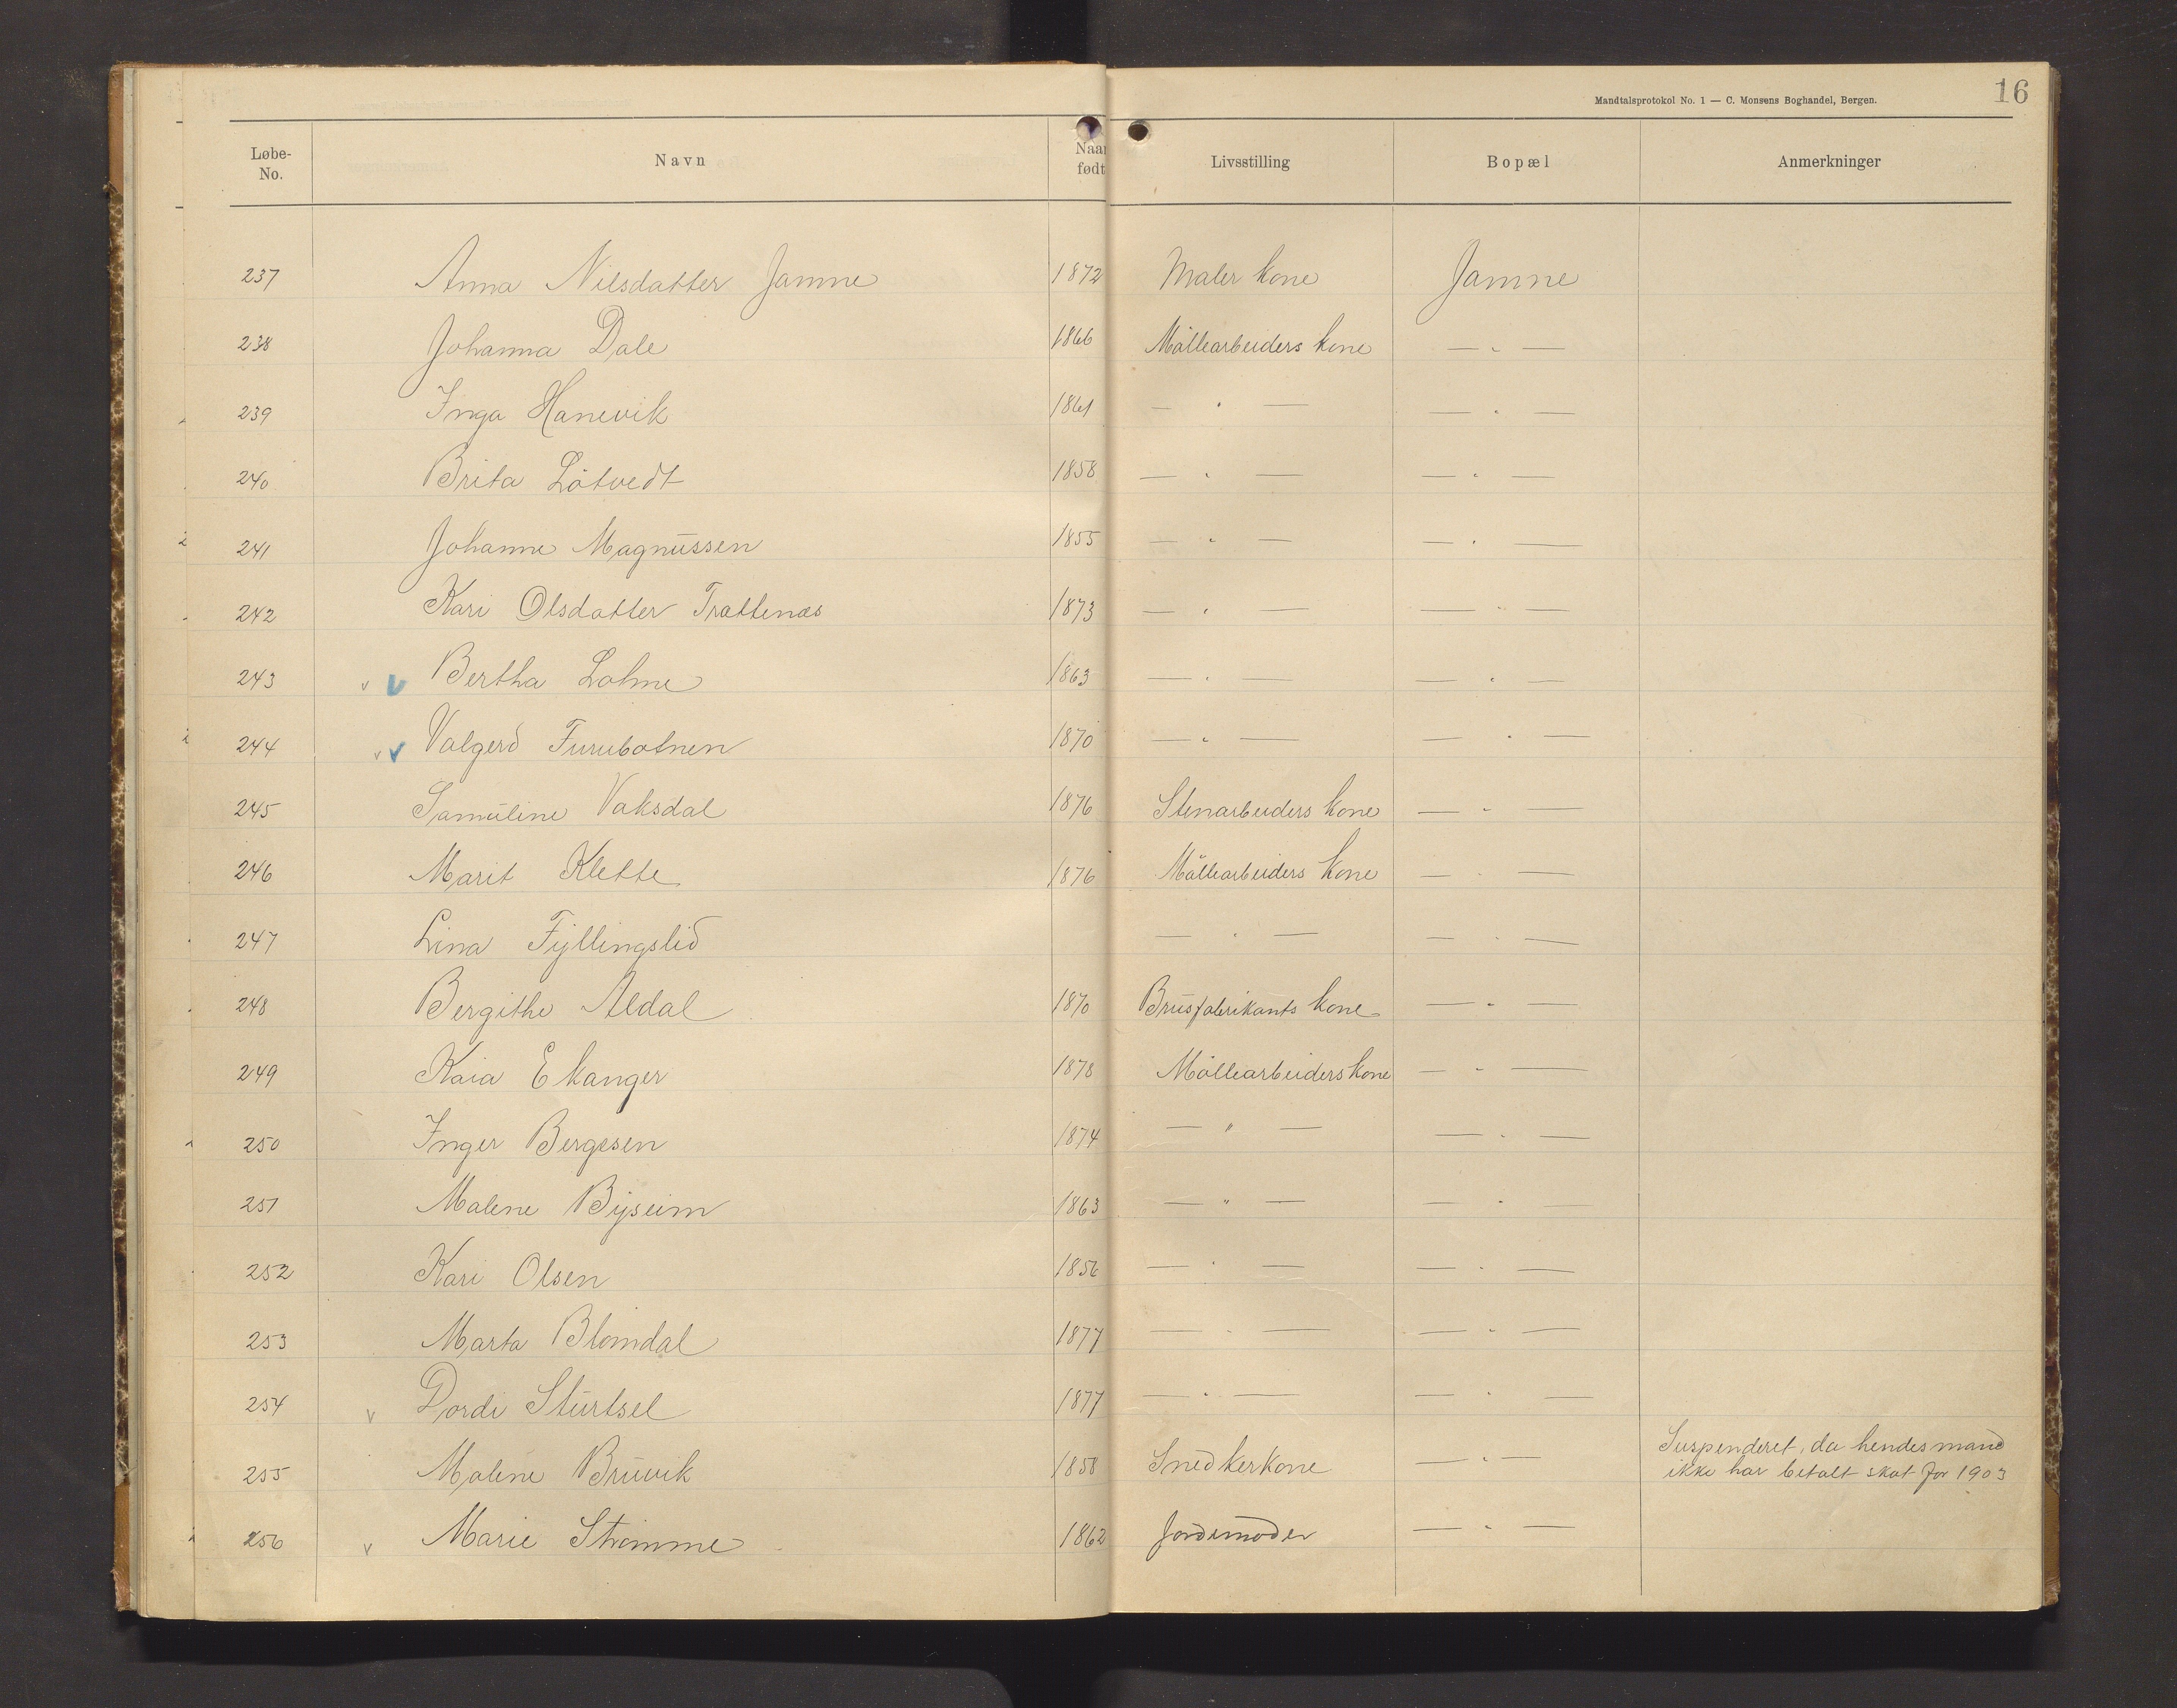 Mandtalsprotokol No. 1 — C. Monsens Boghandel, Bergen. 16
Løbe-No. Navn Naar født Livsstilling Bopæl Anmerkninger
237 Anna Nilsdatter Jamne 1872 Maler kone Jamne
238 Johanna Dale 1866 Møllearbeiders kone — " —
239 Inga Hanevik 1861 — " — — " —
240 Brita Låtvedt 1858 — " — — " —
241 Johanne Magnussen 1855 — " — — " —
242 Kari Olsdatter Trættenæs 1873 — " — — " —
243 v v Bertha Lohne 1863 — " — — " —
244 v v Valgerd Furubotnen 1870 — " — — " —
245 Samuline Vaksdal 1876 Stenarbeiders kone — " —
246 Marit Klette 1876 Møllearbeiders kone — " —
247 Lina Fyllingslid — " — — " —
248 Bergithe Aldal 1870 Brusfabrikants kone — " —
249 Kaia Ekanger 1878 Møllearbeiders kone — " —
250 Inger Bergesen 1874 — " — — " —
251 Malene Byseim 1863 — " — — " —
252 Kari Olsen 1856 — " — — " —
253 Marta Blomdal 1877 — " — — " —
254 v Dordi Sturtsel 1877 — " — — " —
255 Malene Bruvik 1858 Snedkerkone — " — Suspenderet, da hendes mand
ikke har betalt skat for 1903
256 v Marie Strømme 1862 Jordemoder — " —